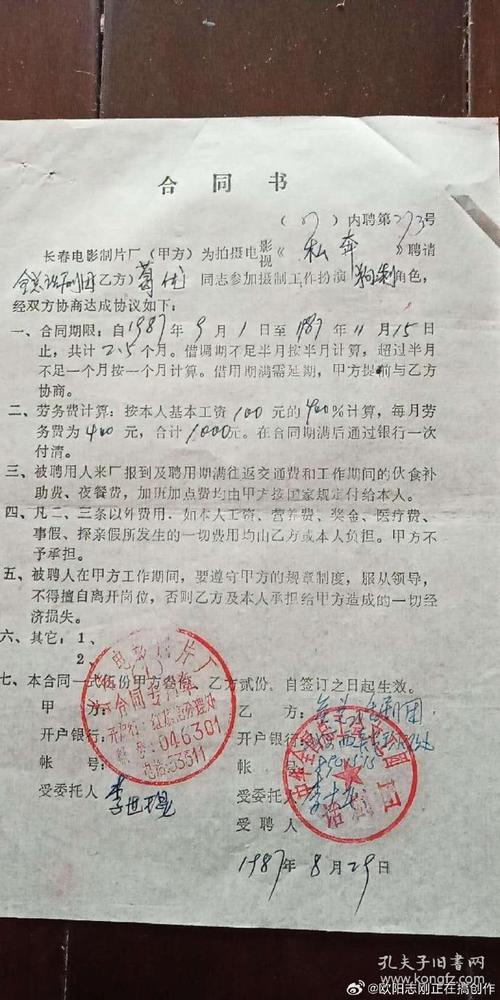 合同书
(87)内聘第273号
长春电影制片厂(甲方)为拍摄电影视《私奔》聘请
全总话剧团(乙方)葛优同志参加摄制工作扮演狗剩角色,
经双方协商达成协议如下:
一、合同期限:自1987年9月1日至1987年11月15日
止,共计2.5个月。借调期不足半月按半月计算,超过半月
不足一个月按一个月计算。借用期满需延期,甲方提前与乙方
协商。
二、劳务费计算:按本人基本工资100元的400%计算,每月劳
务费为400元,合计1000元。在合同期满后通过银行一次
付清。
三、被聘用人来厂报到及聘用期满往返交通费和工作期间的伙食补
助费、夜餐费,加班加点费均由甲方按国家规定付给本人。
四、凡二、三条以外费用,如本人工资、营养费、奖金、医疗费、
事假、探亲假所发生的一切费用均由乙方或本人负担。甲方不
予承担。
五、被聘人在甲方工作期间,要遵守甲方的规章制度,服从领导,
不得擅自离开岗位,否则乙方及本人承担给甲方造成的一切经
济损失。
六、其它:1、
2、
七、本合同一式伍份甲方叁份,乙方贰份,自签订之日起生效。
甲方:
开户银行:
帐号:
受委托人
电影制片厂
合同专用章
046301
电话:53311
乙方:全总话剧团
开户银行:
帐号:
受委托人
受聘人
话剧团
1987年8月29日
孔夫子旧书网
www.kongfz.com
@欧阳志刚正在搞创作